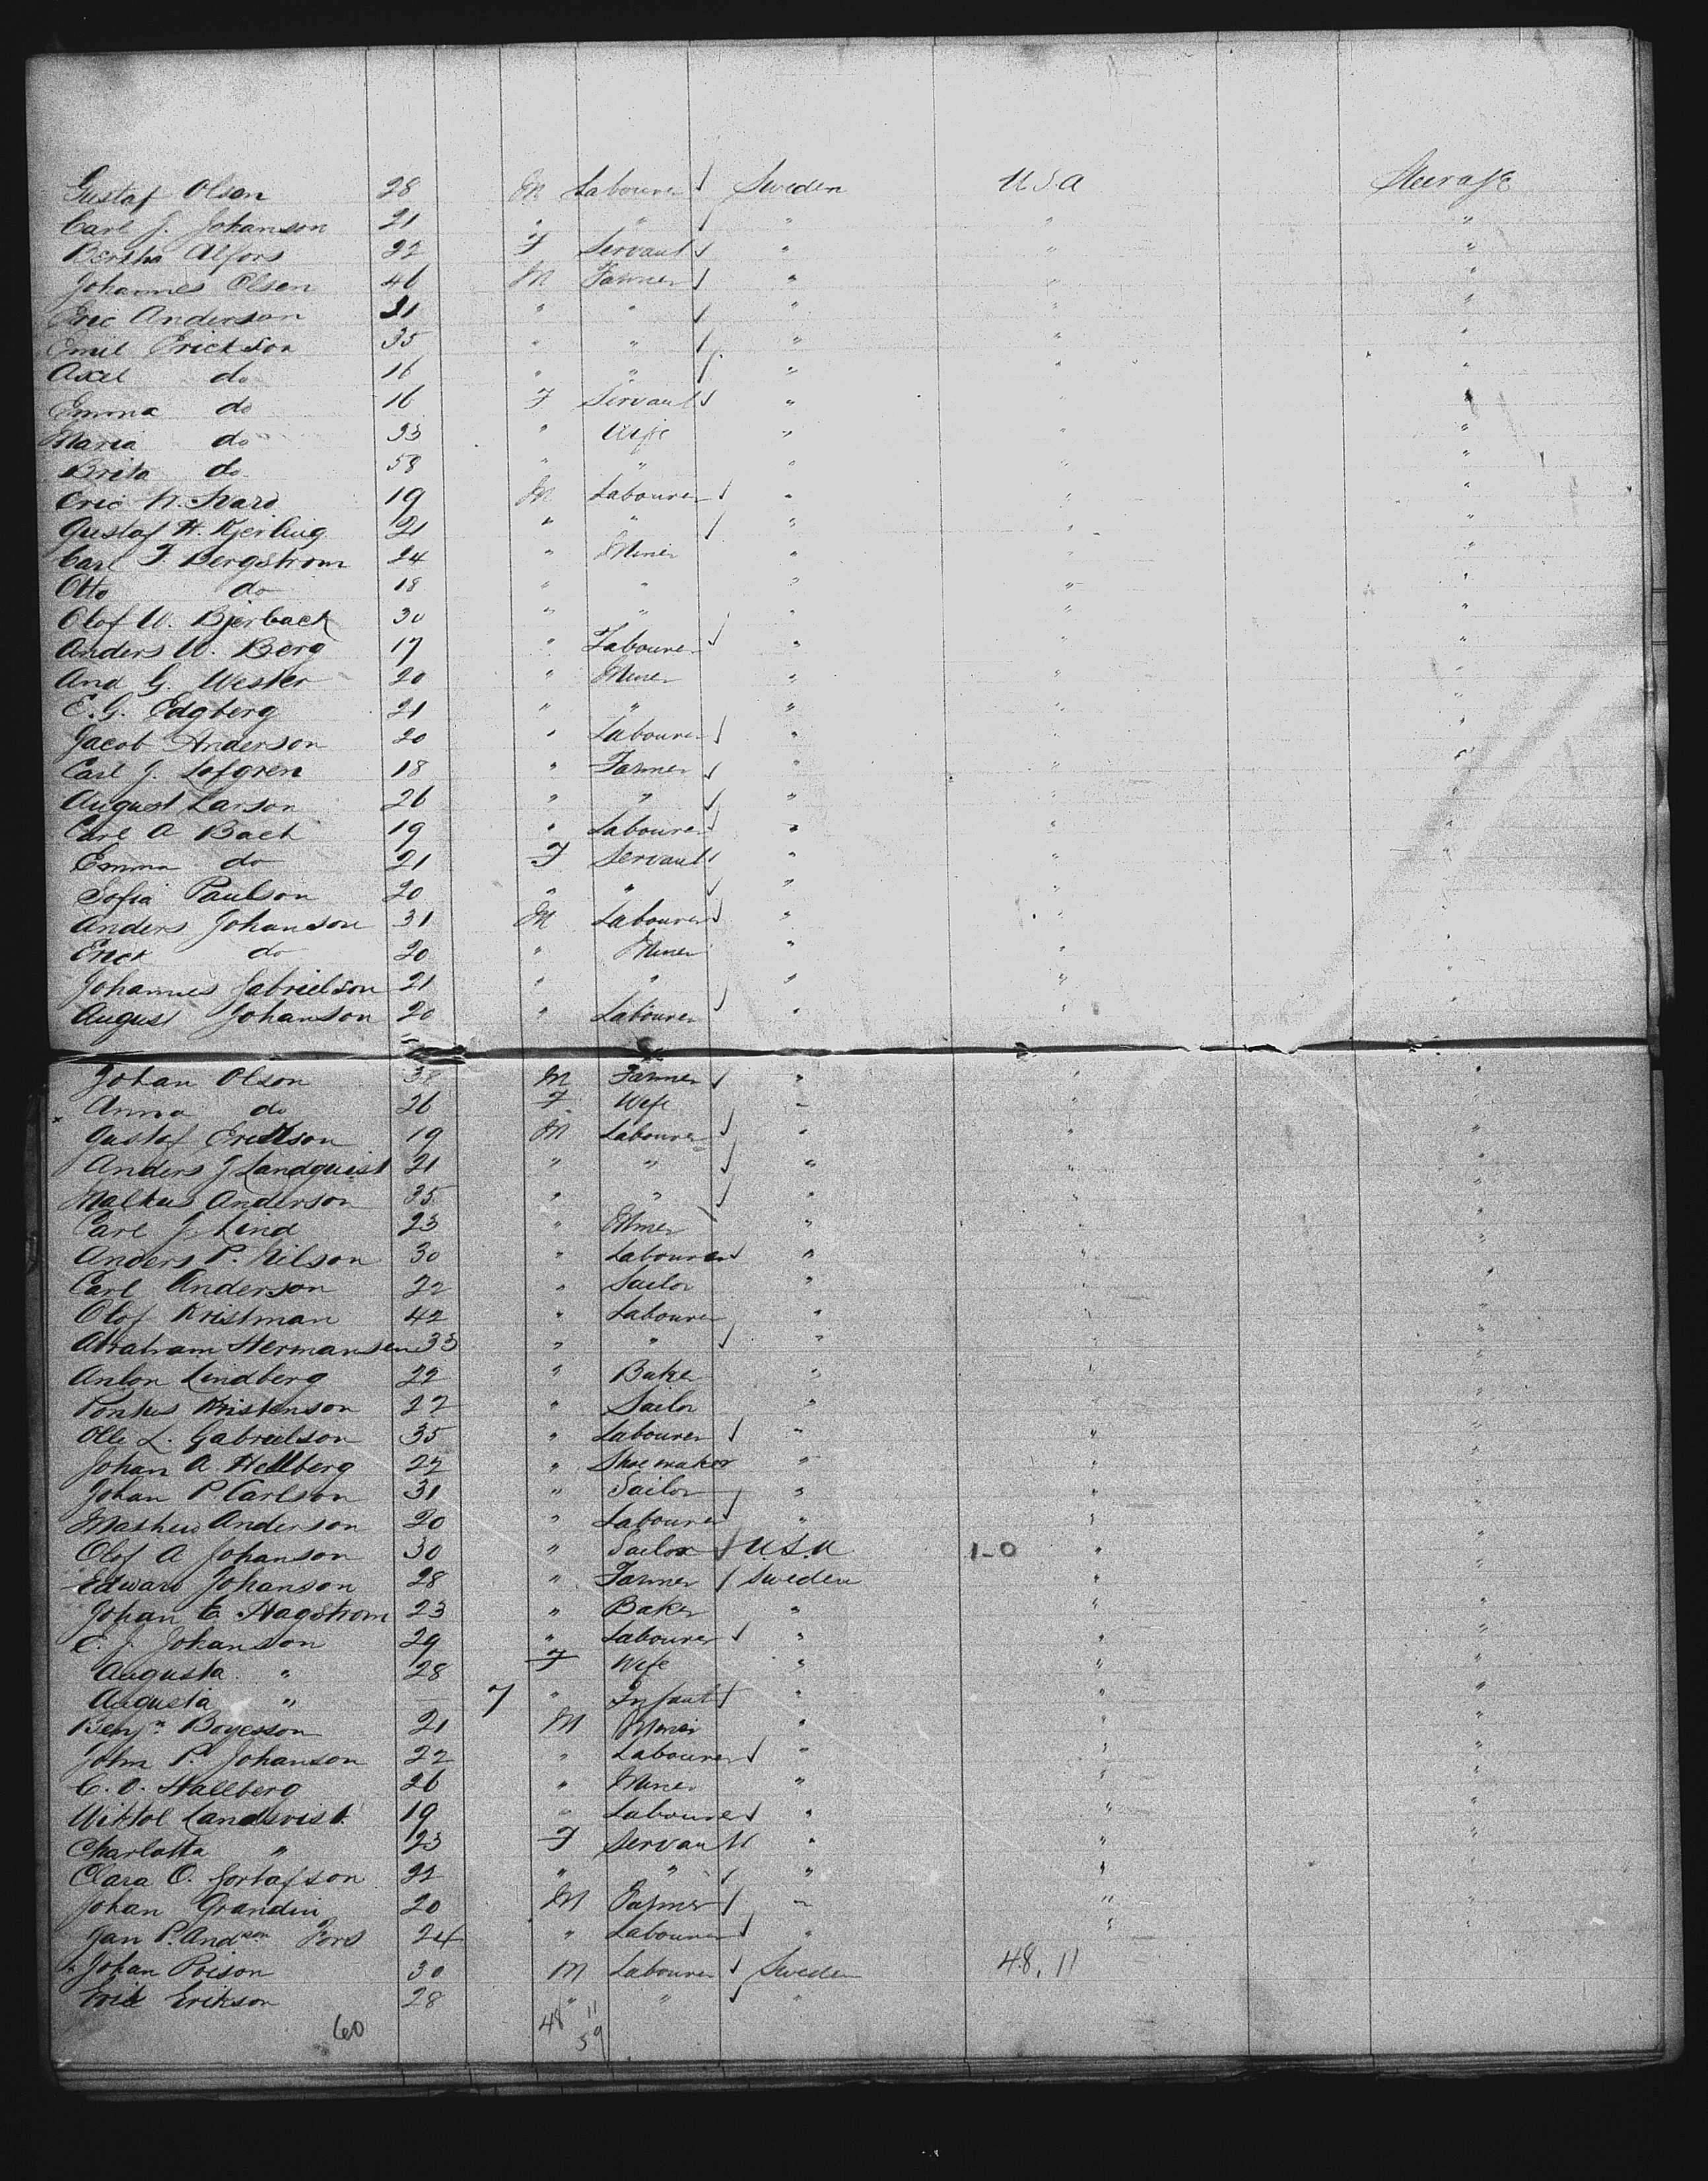 Gustaf Olson 28 M Labourer Sweden USA Steerage
Carl J. Johanson 21 " " " " "
Bertha Alfors 22 F Servant " " "
Johannes Olsen 46 M Farmer " " "
Eric Anderson 21 " " " " "
Emil Erickson 35 " " " " "
Axel do 16 " " " " "
Emma do 16 F Servant " " "
Maria do 33 " Wife " " "
Brita do 58 " " " " "
Eric N. 19 M Labourer " " "
Gustaf H. Kjerling 21 " " " " "
Carl F Bergstrom 24 " Miner " " "
Otto do 18 " " " " "
Olof W. Bjerback 30 " " " " "
Anders W. Berg 17 " Labourer " " "
And G. Wester 20 " Miner " " "
E. G. Edgberg 21 " " " " "
Jacob Anderson 20 " Labourer " " "
Carl J. Lofgren 18 " Farmer " " "
August Larson 26 " " " " "
Carl A Back 19 " Labourer " " "
Emma do 21 F Servant " " "
Sofia Paulson 20 " " " " "
Anders Johanson 31 M Labourer " " "
Erick do 20 " Miner " " "
Johannes Gabrielson 21 " " " " "
August Johanson 20 " Labourer " " "
Johan Olson 38 M Farmer " " "
Anna do 26 F Wife " " "
Gustaf Erickson 19 M Labourer " " "
Anders J Landquist 21 " " " " "
Malkus Anderson 35 " " " " "
Carl J. Lind 23 " Miner " " "
Anders P. Nilson 30 " Labourer " " "
Carl Anderson 22 " Sailor " " "
Olof Kristman 42 " Labourer " " "
Abraham Hermansen 33 " " " " "
Anton Lindberg 22 " Baker " " "
Pontus Kristenson 22 " Sailor " " "
Olle L. Gabrielson 35 " Labourer " " "
Johan A. Hellberg 22 " Shoemaker " " "
Johan P. Carlson 31 " Sailor " " "
Mathew Anderson 20 " Labourer " " "
Olof A Johanson 30 " Sailor U.S.A 1-0 " "
Edward Johanson 28 " Farmer Sweden " "
Johan E Hagstrom 23 " Baker " " "
C. J. Johanson 29 " Labourer " " "
Augusta " 28 F Wife " " "
Augusta " — 7 " Infant " " "
Benjn Boyesson 21 M Miner " " "
John P. Johanson 22 " Labourer " " "
C. O. Hallberg 26 " Miner " " "
Wiktol Landqvist 19 " Labourer " " "
Charlotta " 23 F Servant " " "
Clara O. Gostafson 22 " " " " "
Johan Grandin 20 M Farmer " " "
Jan P. Andson Fors 24 " Labourer " " "
Johan Poison 30 M Labourer Sweden 48. 11
Erik Erikson 28 " " "
60 48 11
59